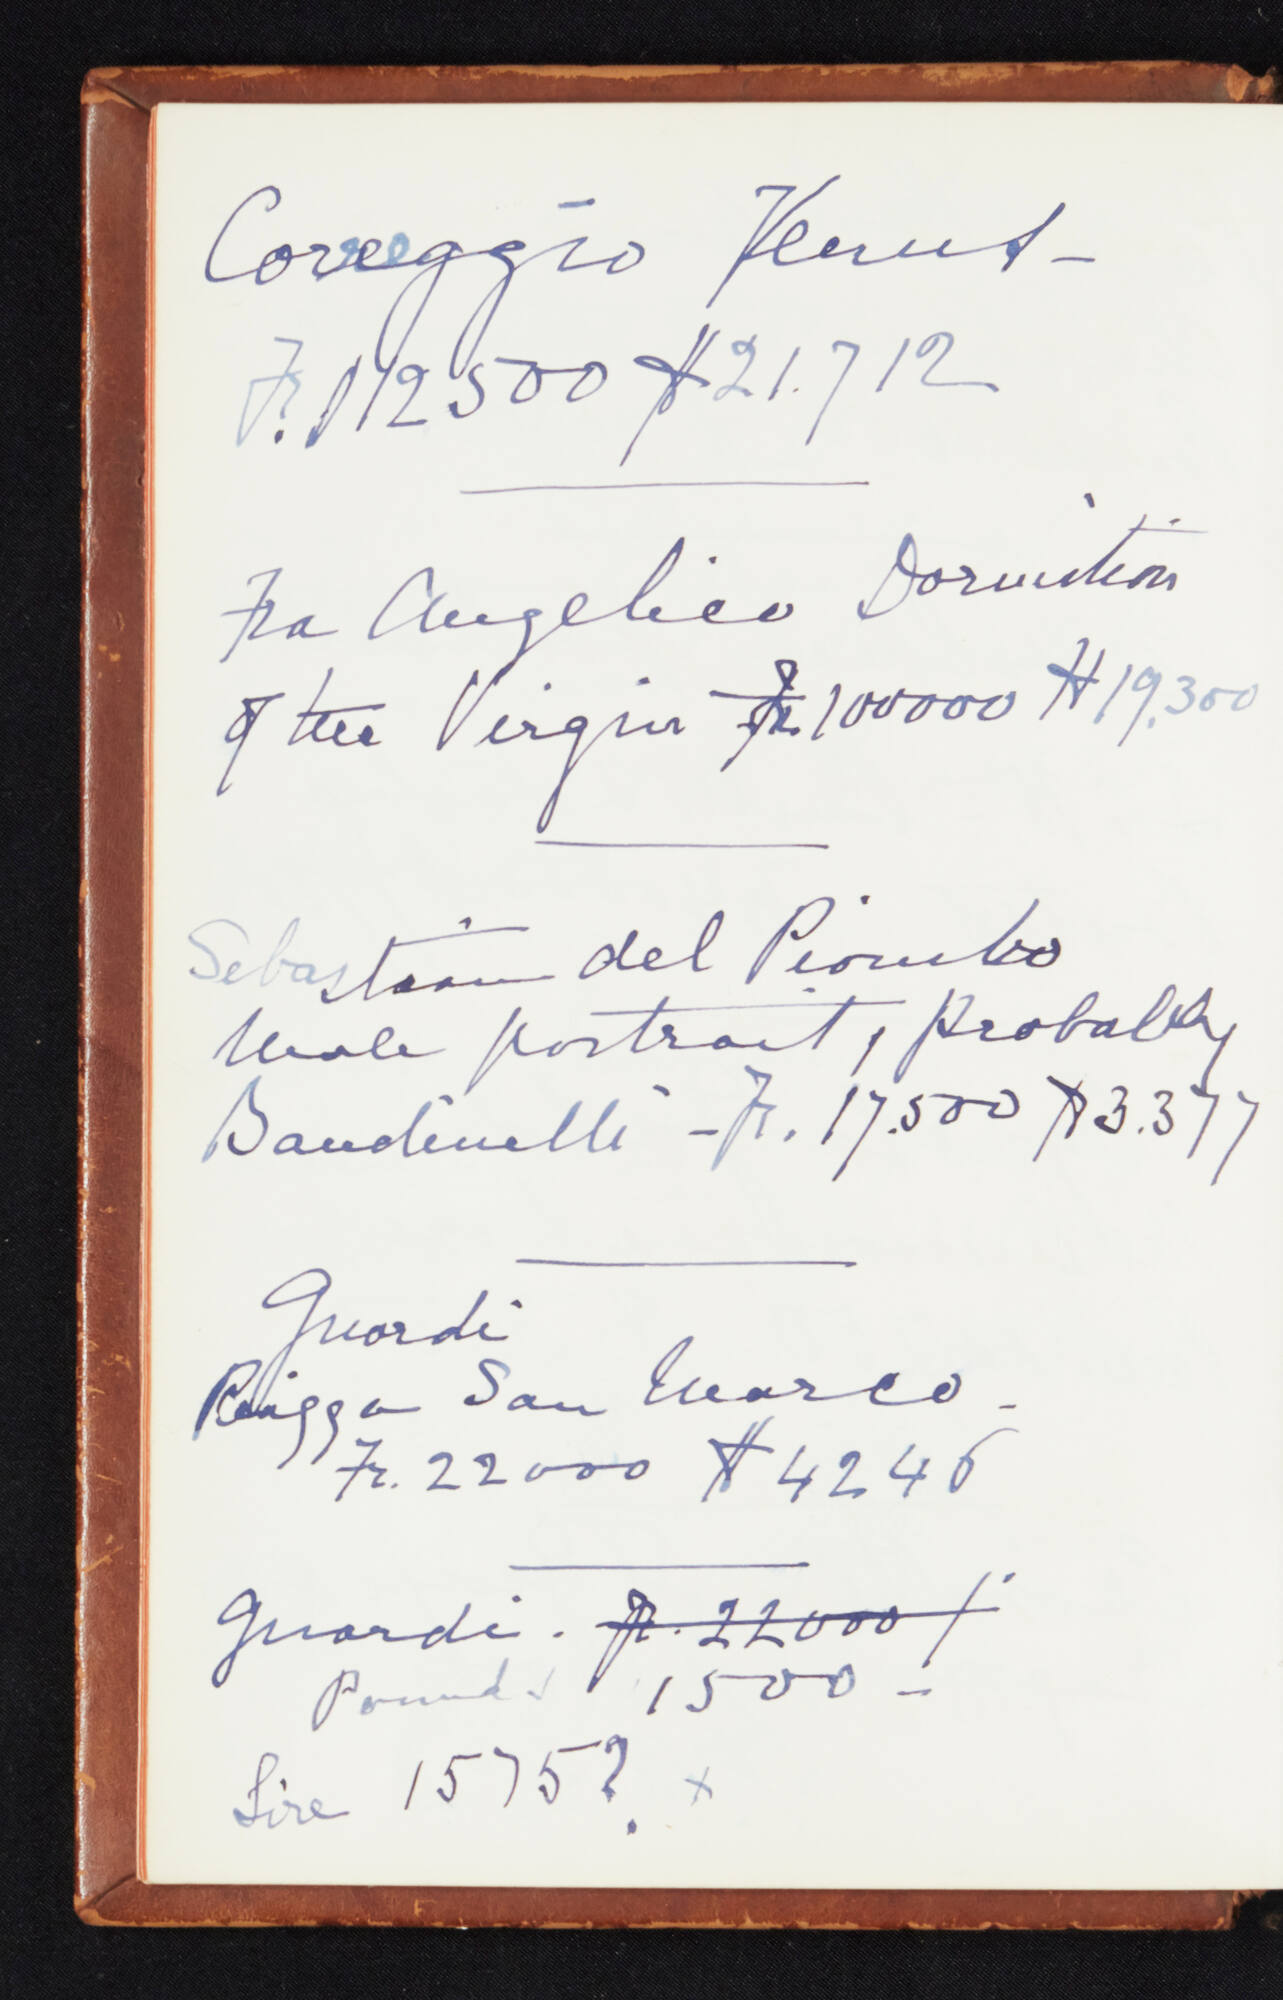 Coreggio Venus -
Fr. 112500 $21.712
Fra Angelico Dormition
of the Virgin Fr. 100000 $19.300
Sebastian del Piombo
Male portrait, probably
Bandinelli - Fr. 17.500 $3.377
Guardi
Piazza San Marco -
Fr. 22000 $4246
Guardi. Fr. 22000 /
Pounds 1500 -
Lire 1575? x